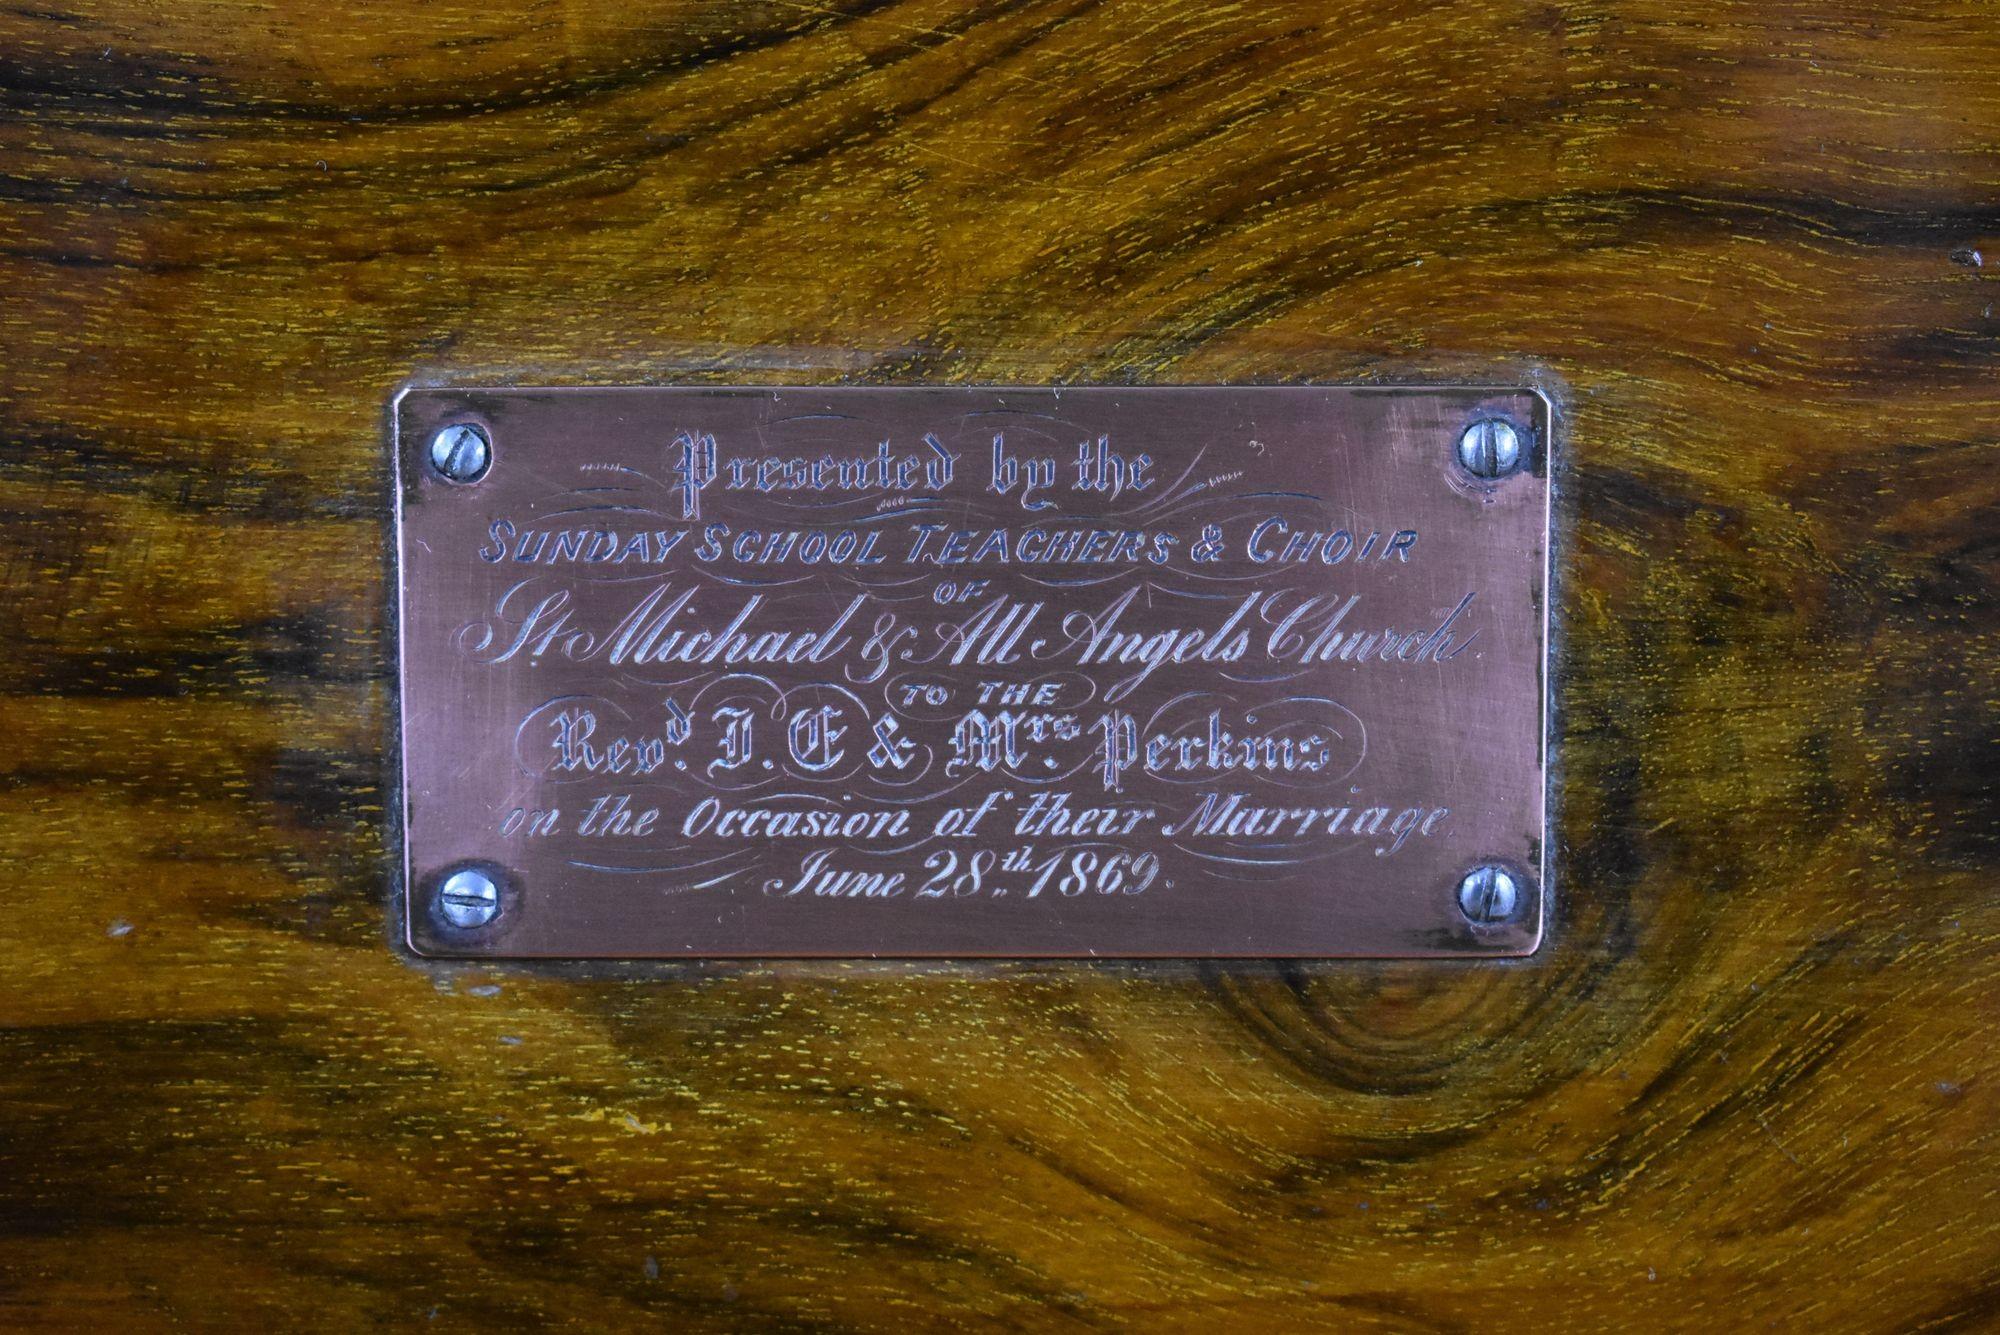 Presented by the
SUNDAY SCHOOL TEACHERS & CHOIR
OF
St. Michael & All Angels Church
TO THE
Revd. J. E & Mrs. Perkins
on the Occasion of their Marriage
June 28th 1869.